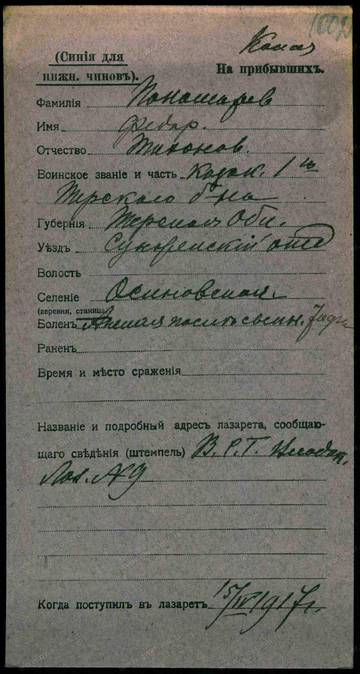 Копия
(Синія для
нижн. чиновъ).
На прибывшихъ.
Фамилія Пономарев
Имя Федор.
Отчество Тихонов.
Воинское званіе и часть Казак. 1го
Терского б-на
Губернія Терская Обл.
Уѣздъ Сунженскій отд
Волость
Селеніе Осиновская.
(деревня, станица)
Боленъ
Раненъ
Время и мѣсто сраженія
Названіе и подробный адресъ лазарета, сообщаю-
щаго свѣдѣнія (штемпель) В. Р. Т.
Лаз. №9
Когда поступилъ въ лазаретъ 15/IV 1917 г.